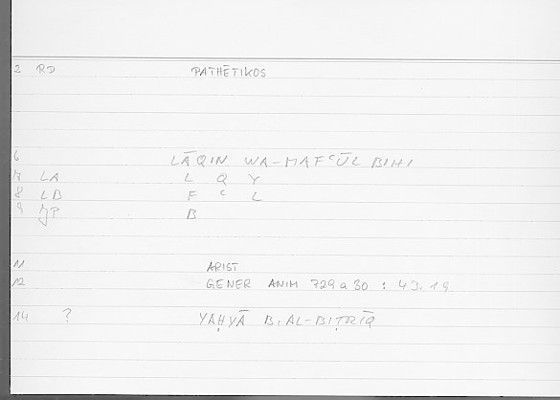 2 RD PATHĒTIKOS
6 LĀQIN WA-MAFʿŪL BIHI
7 LA L Q Y
8 LB F ʿ L
9 B
11 ARIST
12 GENER ANIM 729a30 : 43.19
14 ? YAḤYĀ B. AL-BIṬRĪQ